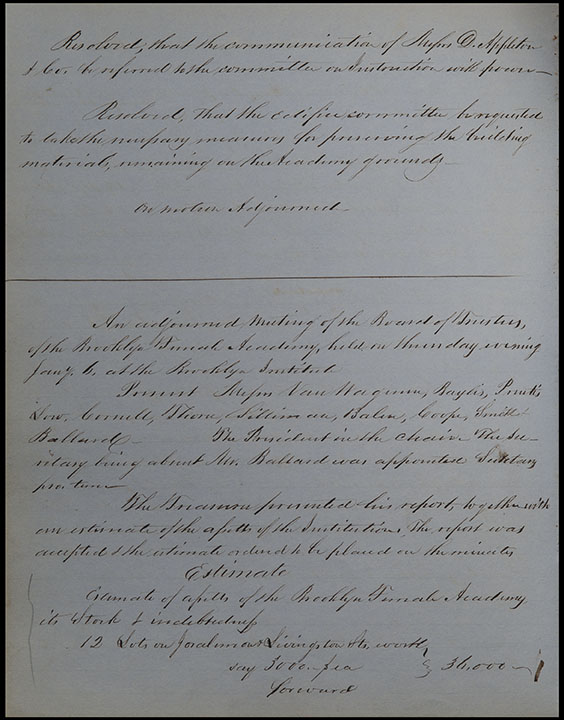 Resolved, that the communication of Messrs D. Appleton
& Co. be referred to the committee on Instruction with power
Resolved, that the edifice committee be requested
to take the necessary measures for preserving the building
materials, remaining on the Academy grounds
On motion Adjourned
An adjourned Meeting of the Board of Trustees,
of the Brooklyn Female Academy, held on thursday evening
Jany. 6. at the Brooklyn Institute
Present Messrs Van Wagenen, Baylis, Prentice
Low, Cornell, Thorne, Silliman, Coope, Smith &
Ballard. The President in the chair. The Sec-
retary being absent Mr. Ballard was appointed Secretary
pro. tem.
The Treasurer presented his report, together with
an estimate of the assets of the Institution, The report was
accepted & the estimate ordered to be placed on the minutes
Estimate
Estimate of assets of the Brooklyn Female Academy
its Stock & indebtedness
12 Lots on Joralemon & Livingston Sts, worth
say 3000 pea 36,000
forward